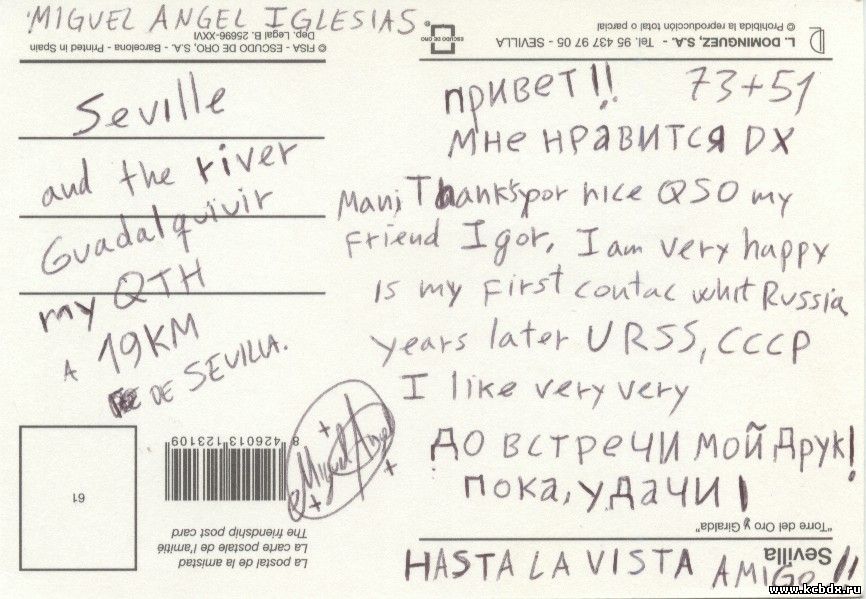 MIGUEL ANGEL IGLESIAS.
© FISA - ESCUDO DE ORO, S.A. - Barcelona - Printed in Spain
Dep. Legal B. 25696-XXVI
ESCUDO DE ORO
L. DOMINGUEZ, S.A. - Tel. 95 437 97 05 - SEVILLA
© Prohibida la reproducción total o parcial
Seville
and the river
Guadalquivir
my QTH
A 19KM
DE SEVILLA.
привет!! 73+51
мне нравится DX
Many Thanks por nice QSO my
Friend Igor, I am very happy
Is my First contac whit Russia
years later URSS, CCCP
I like very very
До встречи мой друк!
пока, удачи!
HASTA LA VISTA AMIGO!!
Miguel Angel
61
8 426013 123109
La postal de la amistad
La carte postale de l'amitié
The friendship post card
Sevilla
"Torre del Oro y Giralda"
www.kcbdx.ru